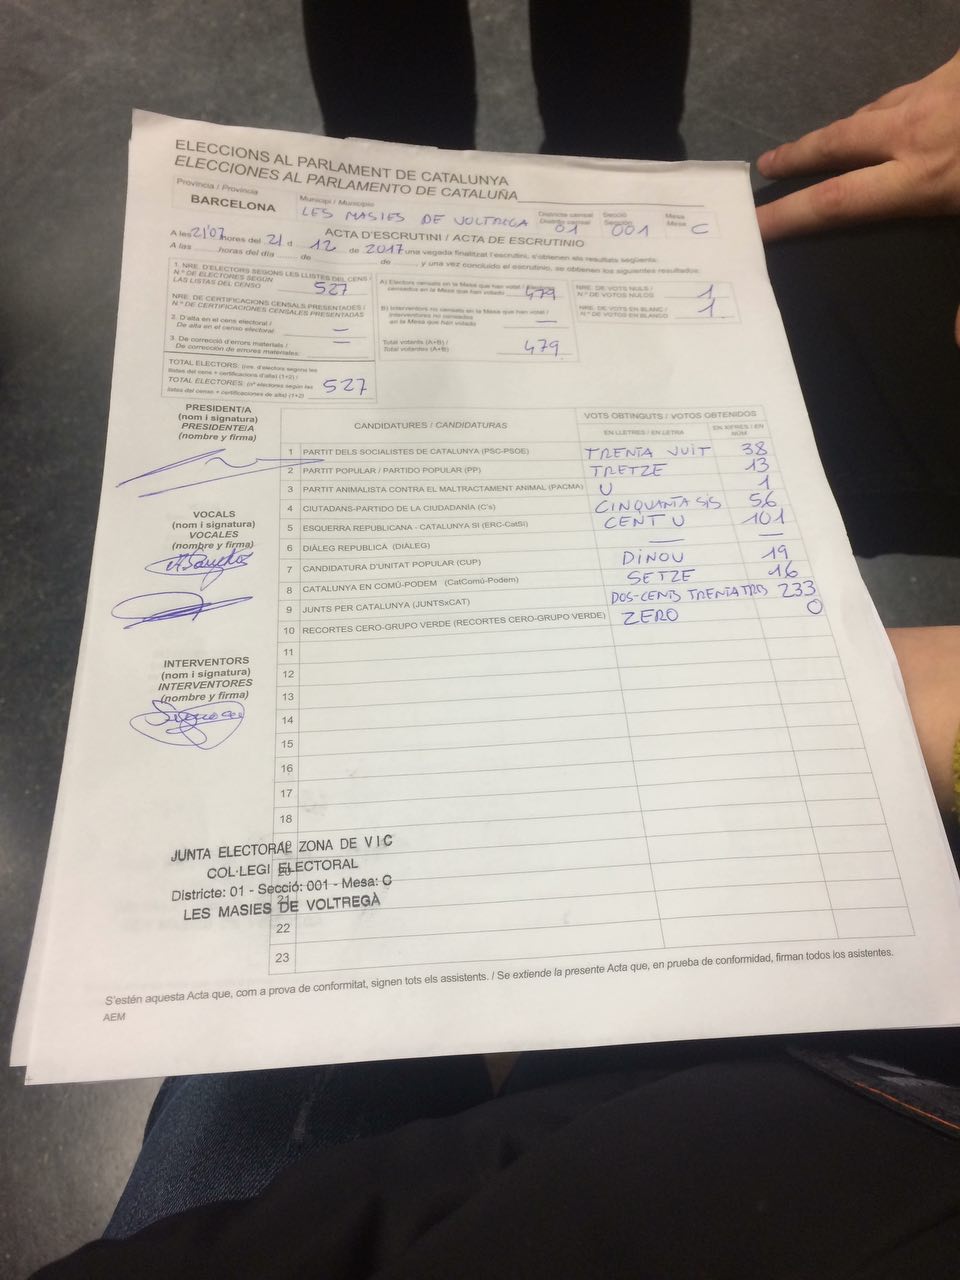 ELECCIONS AL PARLAMENT DE CATALUNYA
ELECCIONES AL PARLAMENTO DE CATALUÑA
Província / Provincia
BARCELONA
Municipi / Municipio
LES MASIES DE VOLTREGA
Districte censal
Distrito censal
01
Secció
Sección
001
Mesa
Mesa
C
ACTA D'ESCRUTINI / ACTA DE ESCRUTINIO
A les 21'07 hores del 21 d 12 de 2017 una vegada finalitzat l'escrutini, s'obtienen els resultats següents:
A las ........ horas del día ........ de ........ de ........ y una vez concluido el escrutinio, se obtienen los siguientes resultados:
1. NRE. D'ELECTORS SEGONS LES LLISTES DEL CENS /
N.º DE ELECTORES SEGÚN
LAS LISTAS DEL CENSO
527
NRE. DE CERTIFICACIONS CENSALS PRESENTADES /
N.º DE CERTIFICACIONES CENSALES PRESENTADAS
2. D'alta en el cens electoral /
De alta en el censo electoral:
3. De correcció d'errors materials /
De corrección de errores materiales:
TOTAL ELECTORS: (nre. d'electors segons les
llistes del cens + certificacions d'alta) (1+2) /
TOTAL ELECTORES: (nº electores según las
listas del censo + certificaciones de alta) (1+2)
527
A) Electors censats en la Mesa que han votat / Electores
censados en la Mesa que han votado
479
B) Interventors no censats en la Mesa que han votat /
Interventores no censados
en la Mesa que han votado
—
Total votants (A+B) /
Total votantes (A+B)
479
NRE. DE VOTS NULS /
N.º DE VOTOS NULOS
1
NRE. DE VOTS EN BLANC /
N.º DE VOTOS EN BLANCO
1
PRESIDENT/A
(nom i signatura)
PRESIDENTE/A
(nombre y firma)
VOCALS
(nom i signatura)
VOCALES
(nombre y firma)
INTERVENTORS
(nom i signatura)
INTERVENTORES
(nombre y firma)
CANDIDATURES / CANDIDATURAS
VOTS OBTINGUTS / VOTOS OBTENIDOS
EN LLETRES / EN LETRA
EN XIFRES / EN NÚM
1 PARTIT DELS SOCIALISTES DE CATALUNYA (PSC-PSOE) TRENTA VUIT 38
2 PARTIT POPULAR / PARTIDO POPULAR (PP) TRETZE 13
3 PARTIT ANIMALISTA CONTRA EL MALTRACTAMENT ANIMAL (PACMA) U 1
4 CIUTADANS-PARTIDO DE LA CIUDADANÍA (C's) CINQUANTA SIS 56
5 ESQUERRA REPUBLICANA - CATALUNYA SÍ (ERC-CatSí) CENT U 101
6 DIÀLEG REPUBLICÀ (DIÀLEG) — —
7 CANDIDATURA D'UNITAT POPULAR (CUP) DINOU 19
8 CATALUNYA EN COMÚ-PODEM (CatComú-Podem) SETZE 16
9 JUNTS PER CATALUNYA (JUNTSxCAT) DOS-CENTS TRENTA TRES 233
10 RECORTES CERO-GRUPO VERDE (RECORTES CERO-GRUPO VERDE) ZERO 0
11
12
13
14
15
16
17
18
19
20
21
22
23
JUNTA ELECTORAL ZONA DE VIC
COL·LEGI ELECTORAL
Districte: 01 - Secció: 001 - Mesa: C
LES MASIES DE VOLTREGÀ
S'estén aquesta Acta que, com a prova de conformitat, signen tots els assistents. / Se extiende la presente Acta que, en prueba de conformidad, firman todos los asistentes.
AEM